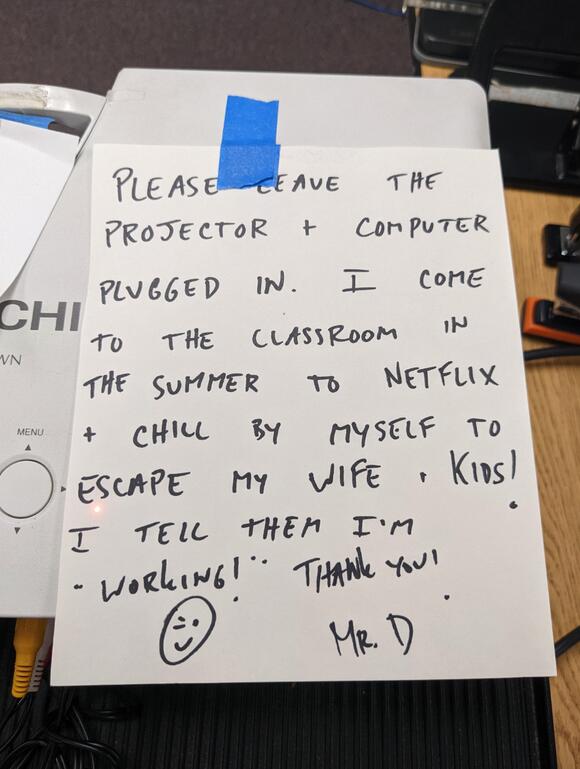 PLEASE LEAVE THE
PROJECTOR + COMPUTER
PLUGGED IN. I COME
TO THE CLASSROOM IN
THE SUMMER TO NETFLIX
+ CHILL BY MYSELF TO
ESCAPE MY WIFE + KIDS!
I TELL THEM I'M
"WORKING!" THANK YOU!
MR. D
CHI
WN
MENU